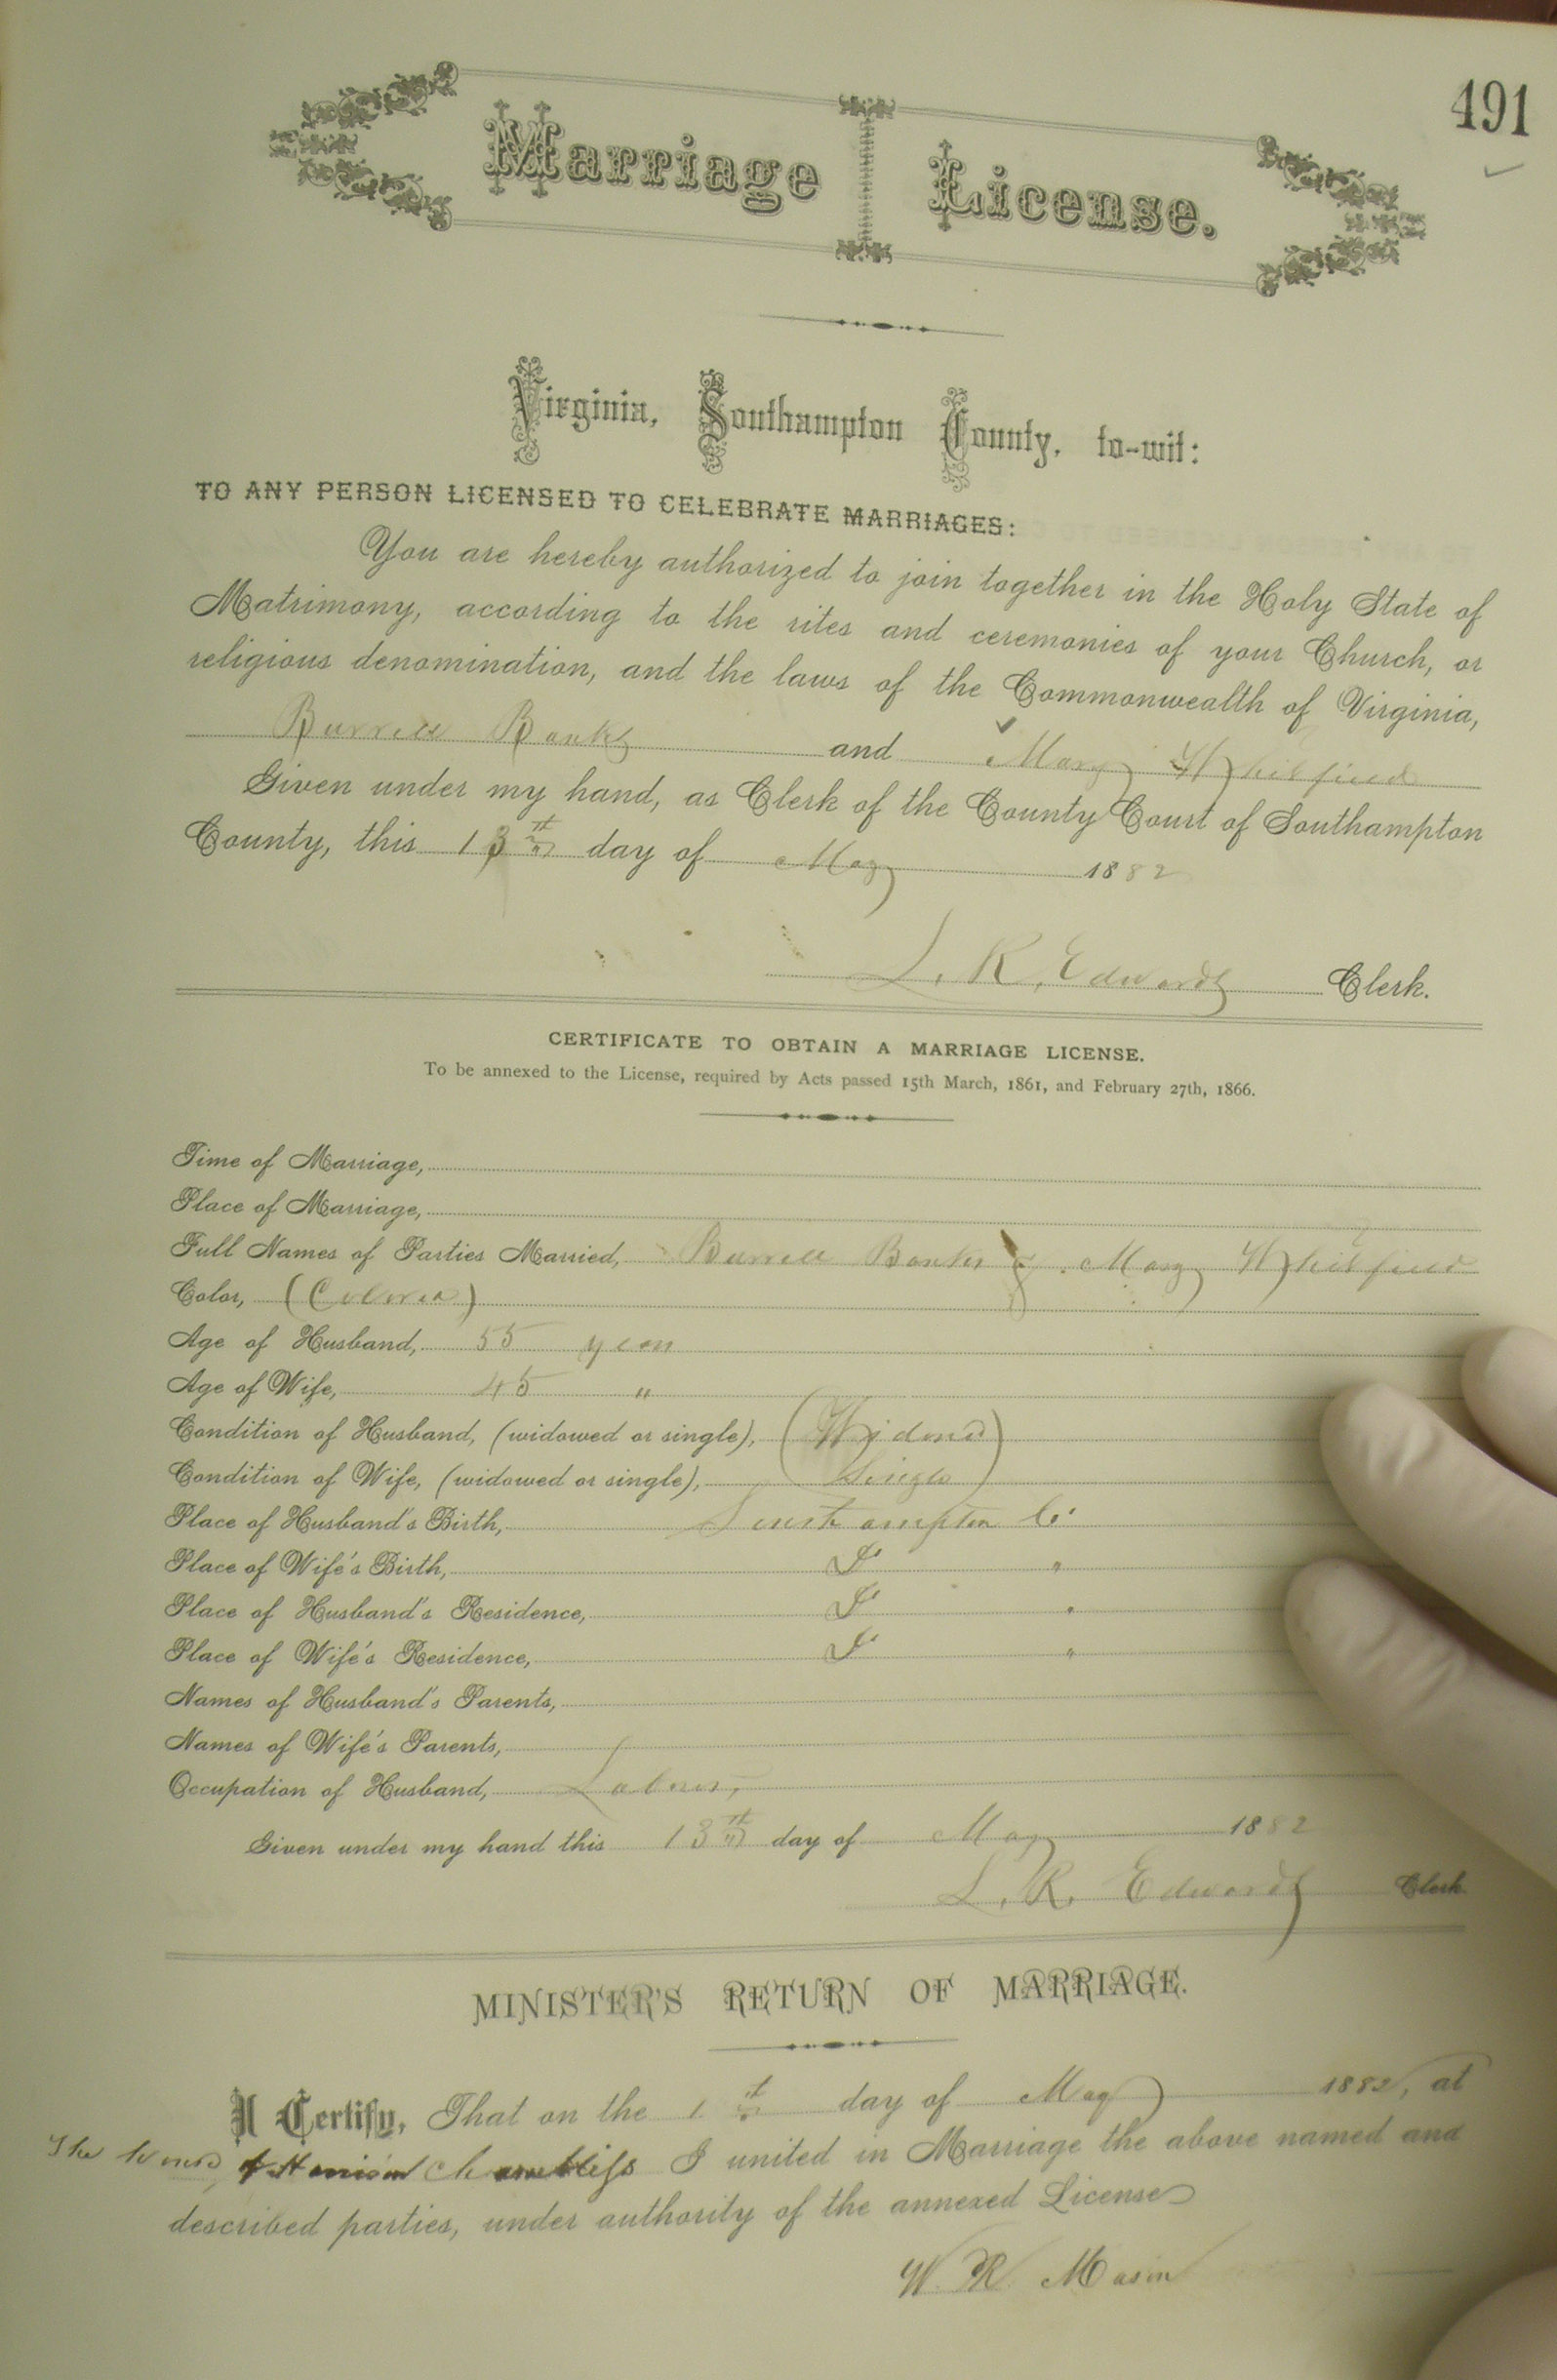 491
Marriage License.
Virginia, Southampton County, to-wit:
TO ANY PERSON LICENSED TO CELEBRATE MARRIAGES:
You are hereby authorized to join together in the Holy State of
Matrimony, according to the rites and ceremonies of your Church, or
religious denomination, and the laws of the Commonwealth of Virginia,
Burrell Banks and Mary Whitfield
Given under my hand, as Clerk of the County Court of Southampton
County, this 13th day of May 1882
L. R. Edwards Clerk.
CERTIFICATE TO OBTAIN A MARRIAGE LICENSE.
To be annexed to the License, required by Acts passed 15th March, 1861, and February 27th, 1866.
Time of Marriage,
Place of Marriage,
Full Names of Parties Married, Burrell Banks & Mary Whitfield
Color, (Colored)
Age of Husband, 55 years
Age of Wife, 45 "
Condition of Husband, (widowed or single), (Widowed)
Condition of Wife, (widowed or single), Single
Place of Husband's Birth, Southampton Co.
Place of Wife's Birth, Do "
Place of Husband's Residence, Do "
Place of Wife's Residence, Do "
Names of Husband's Parents,
Names of Wife's Parents,
Occupation of Husband, Laborer,
Given under my hand this 13th day of May 1882
L. R. Edwards Clerk
MINISTER'S RETURN OF MARRIAGE.
I Certify, That on the 1 th day of May 1882, at
The house of Chambliss I united in Marriage the above named and
described parties, under authority of the annexed License
W. R. Mason